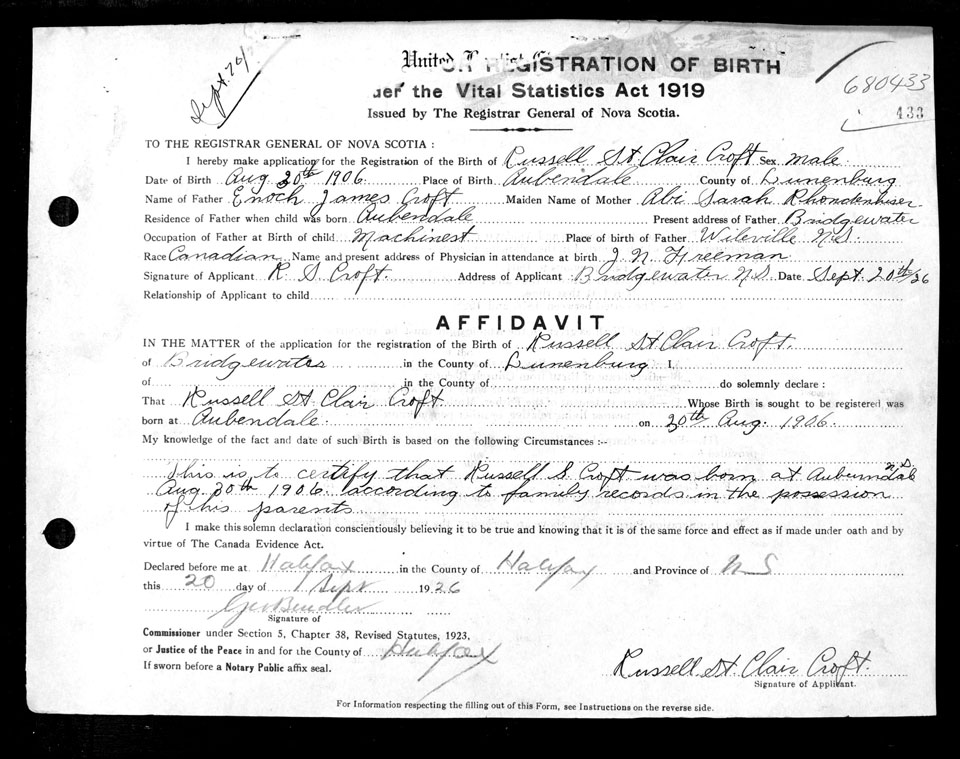 Sept. 20/
United
REGISTRATION OF BIRTH
680433
der the Vital Statistics Act 1919
Issued by The Registrar General of Nova Scotia.
433
TO THE REGISTRAR GENERAL OF NOVA SCOTIA :
I hereby make application for the Registration of the Birth of Russell St Clair Croft Sex male
Date of Birth Aug 20th 1906 Place of Birth Aubendale County of Lunenburg
Name of Father Enoch James Croft Maiden Name of Mother Abi Sarah Rhondenhiser
Residence of Father when child was born Aubendale Present address of Father Bridgewater
Occupation of Father at Birth of child Machinest Place of birth of Father Wileville N.S.
Race Canadian Name and present address of Physician in attendance at birth J. N. Freeman
Signature of Applicant R. S Croft. Address of Applicant Bridgewater N.S. Date Sept. 20th/26
Relationship of Applicant to child
AFFIDAVIT
IN THE MATTER of the application for the registration of the Birth of Russell St Clair Croft.
of Bridgewater in the County of Lunenburg I,
of in the County of do solemnly declare :
That Russell St. Clair Croft Whose Birth is sought to be registered was
born at Aubendale on 20th Aug. 1906.
My knowledge of the fact and date of such Birth is based on the following Circumstances :--
This is to certify that Russell S Croft was born at Auburndale N S
Aug. 20th 1906. according to family records in the possession
of his parents
I make this solemn declaration conscientiously believing it to be true and knowing that it is of the same force and effect as if made under oath and by
virtue of The Canada Evidence Act.
Declared before me at Halifax in the County of Halifax and Province of N S
this 20 day of Sept 1926
Signature of
Commissioner under Section 5, Chapter 38, Revised Statutes, 1923,
or Justice of the Peace in and for the County of Halifax
If sworn before a Notary Public affix seal.
Russell St. Clair Croft.
Signature of Applicant.
For Information respecting the filling out of this Form, see Instructions on the reverse side.